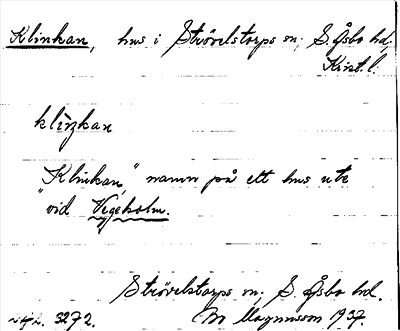 Klinkan, hus i Strövelstorps sn, S. Åsbo hd,
Krist. l.
kliŋkan
"Klinkan," namn på ett hus ute
vid Vegeholm.
Strövelstorps sn, S. Åsbo hd.
3272. M Magnusson 1937.